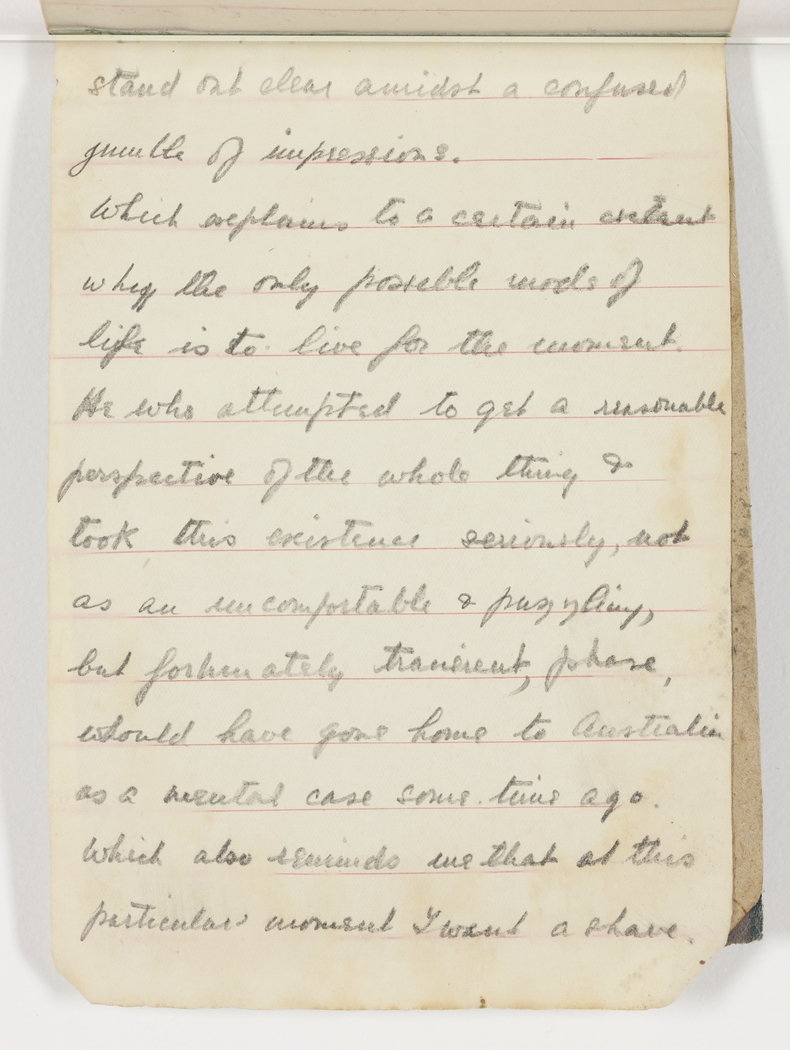 stand out clear amidst a confused
jumble of impressions.
Which explains to a certain extent
why the only possible mode of
life is to live for the moment.
He who attempted to get a reasonable
perspective of the whole thing &
took this existence seriously, not
as an uncomfortable & puzzling,
but fortunately transient, phase,
would have gone home to Australia
as a mental case some time ago.
Which also reminds me that at this
particular moment I want a shave.